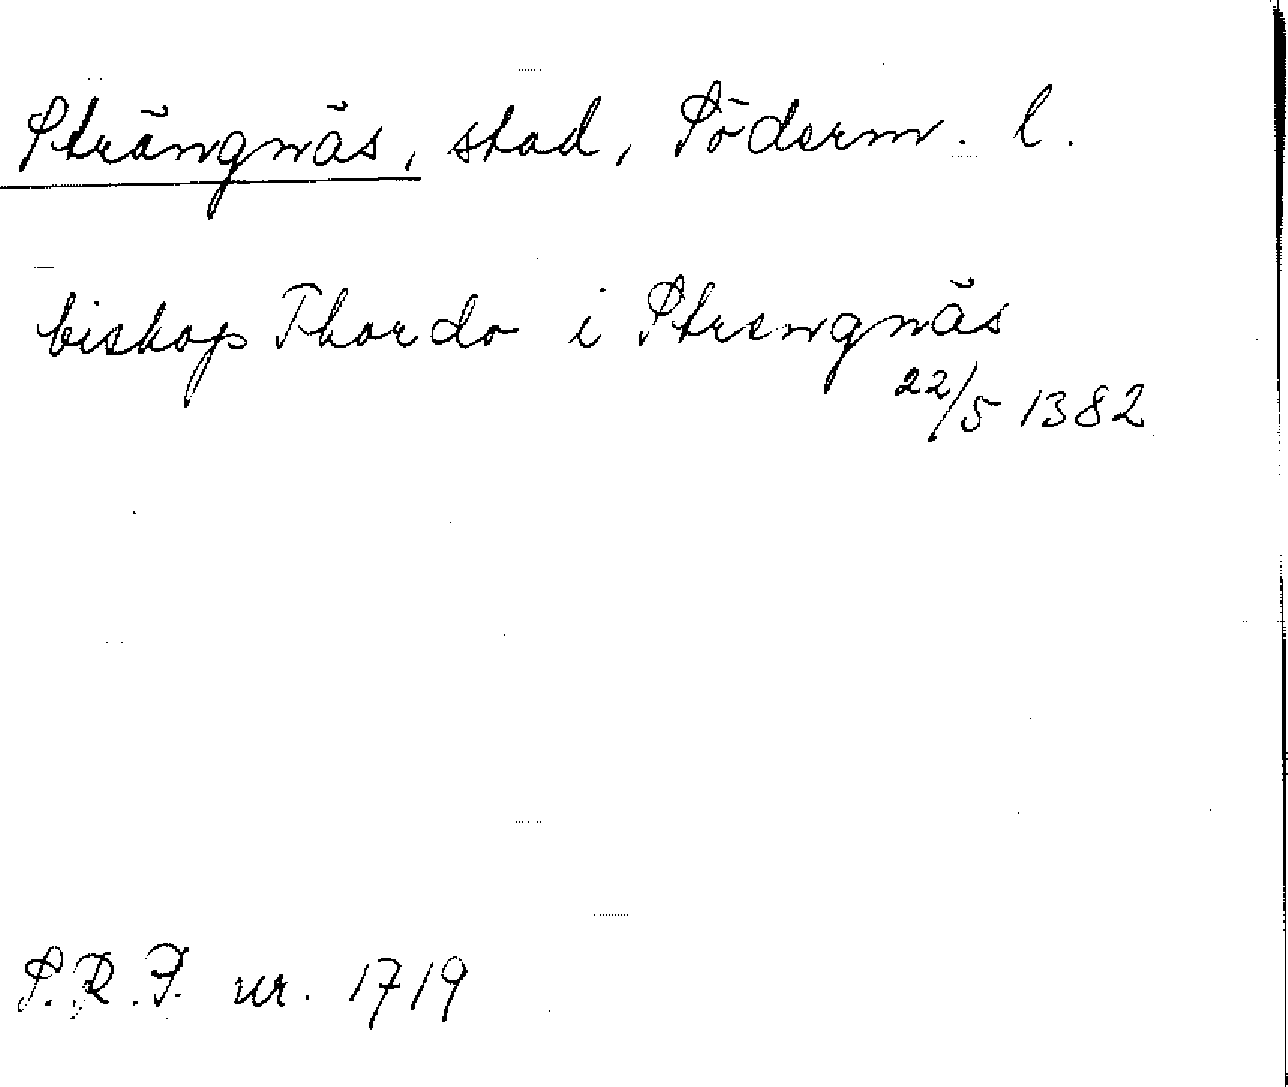 Strängnäs, stad, Söderm. l.
biskop Thordo i Strengnäs
22/5 1382
S.R.P. nr. 1719